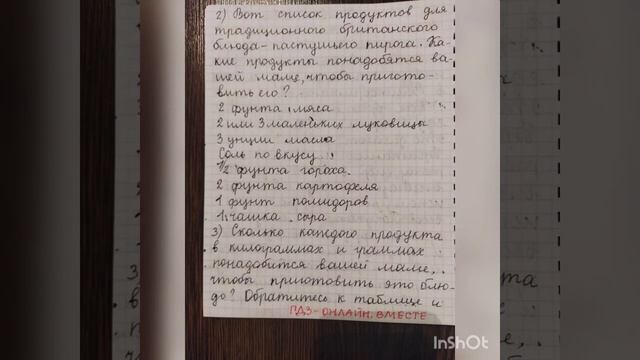 2) Вот список продуктов для
традиционного британского
блюда - пастушьего пирога. Ка-
кие продукты понадобятся ва-
шей маме, чтобы пригото-
вить его?
2 фунта мяса
2 или 3 маленьких луковицы
3 унции масла
Соль по вкусу
1/2 фунта гороха.
2 фунта картофеля
1 фунт помидоров
1 чашка сыра
3) Сколько каждого продукта
в килограммах и граммах
понадобится вашей маме,
чтобы приготовить это блю-
до? Обратитесь к таблице и
ГДЗ-ОНЛАЙН. ВМЕСТЕ
InShOt